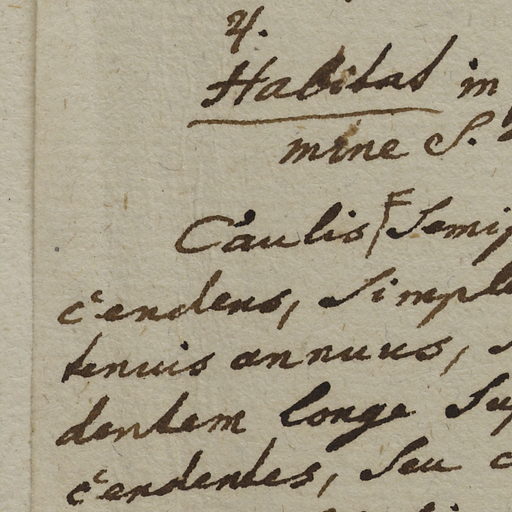 4.
Habitat in
mine S.
Caulis F Semip
cendens, Simpl
tenuis annuus,
dentem longe Sup
cendentes, seu